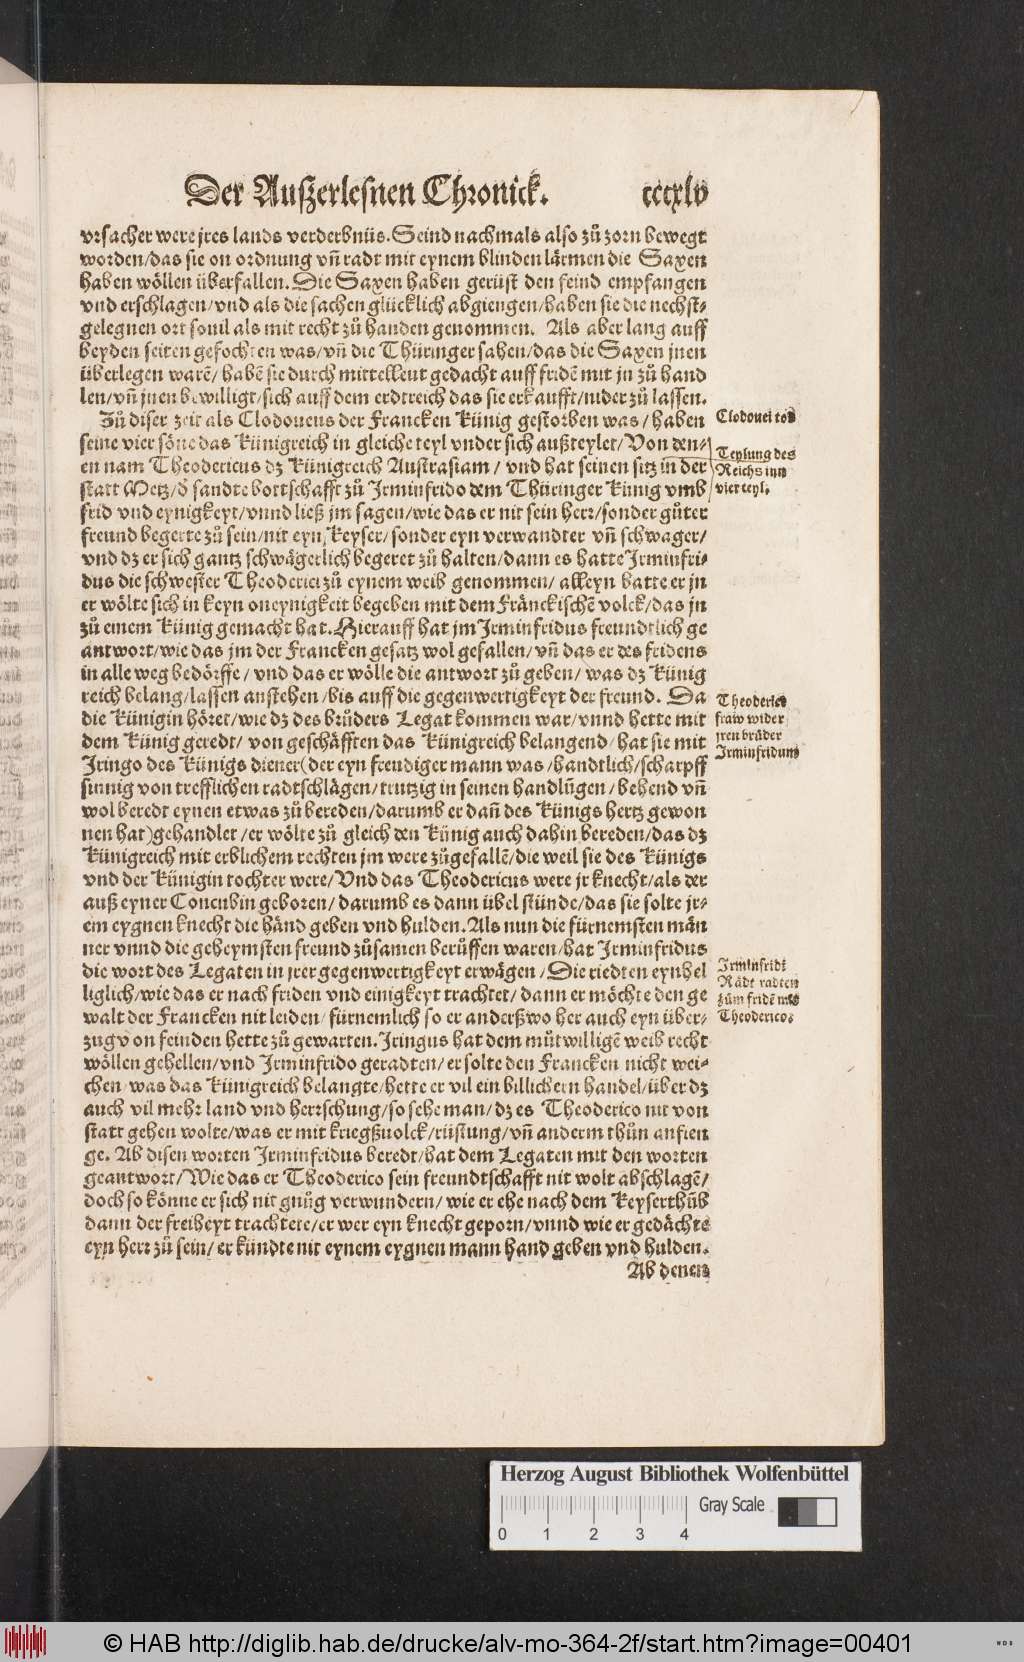 Der Außerlesnen Chronick. cccxlv
vrsacher were jres lands verderbnüs. Seind nachmals also zů zorn bewegt
worden/das sie on ordnung vñ radt mit eynem blinden lärmen die Saxen
haben wöllen überfallen. Die Saxen haben gerüst den feind empfangen
vnd erschlagen/vnd als die sachen glücklich abgiengen/haben sie die nechst-
gelegnen ort souil als mit recht zů handen genommen. Als aber lang auff
beyden seiten gefochten was/vñ die Thüringer sahen/das die Saxen jnen
überlegen warē/habē sie durch mittelleut gedacht auff fridē mit jn zů hand
len/vñ jnen bewilligt/sich auff dem erdtreich das sie erkaufft/nider zů lassen.
Zů diser zeit als Clodoueus der Francken Künig gestorben was/haben
seine vier söne das Künigreich in gleiche teyl vnder sich außteylet/Von den-
en nam Theodericus dz Künigreich Austrasiam/vnd hat seinen sitz in der
statt Metz/d̄ sandte bottschafft zů Irminfrido dem Thüringer Künig vmb
frid vnd eynigkeyt/vnnd ließ jm sagen/wie das er nit sein herr/sonder gůter
freund begerte zů sein/nit eyn Keyser/sonder eyn verwandter vñ schwager/
vnd dz er sich gantz schwägerlich begeret zů halten/dann es hatte Irminfri-
dus die schwester Theoderici zů eynem weib genommen/alleyn batte er jn
er wölte sich in keyn oneynigkeit begeben mit dem Fränckischē volck/das jn
zů einem Künig gemacht hat. Hierauff hat jm Irminfridus freundtlich ge
antwort/wie das jm der Francken gesatz wol gefallen/vñ das er des fridens
in alle weg bedörffe/vnd das er wölle die antwort zů geben/was dz Künig
reich belang/lassen anstehen/bis auff die gegenwertigkeyt der freund. Da
die Künigin höret/wie dz des brůders Legat kommen war/vnnd hette mit
dem Künig geredt/von geschäfften das Künigreich belangend/hat sie mit
Iringo des Künigs diener(der eyn freudiger mann was/handtlich/scharpff
sinnig von trefflichen radtschlägen/trutzig in seinen handlũgen/behend vñ
wol beredt eynen etwas zů bereden/darumb er dañ des Künigs hertz gewon
nen hat)gehandlet/er wölte zů gleich den Künig auch dahin bereden/das dz
Künigreich mit erblichem rechten jm were zůgefallē/die weil sie des Künigs
vnd der Künigin tochter were/Vnd das Theodericus were jr knecht/als der
auß eyner Concubin geboren/darumb es dann übel stünde/das sie solte jr-
em eygnen knecht die händ geben vnd hulden. Als nun die fürnemsten män
ner vnnd die geheymsten freund zůsamen berůffen waren/hat Irminfridus
die wort des Legaten in jrer gegenwertigkeyt erwägen/Die riedten eynhel
liglich/wie das er nach friden vnd einigkeyt trachtet/dann er möchte den ge
walt der Francken nit leiden/fürnemlich so er anderßwo her auch eyn über-
zug von feinden hette zů gewarten. Iringus hat dem můtwilligē weib recht
wöllen gehellen/vnd Irminfrido geradten/er solte den Francken nicht wei-
chen/was das Künigreich belangte/hette er vil ein billichern handel/über dz
auch vil mehr land vnd herrschung/so sehe man/dz es Theoderico nit von
statt gehen wolte/was er mit kriegßuolck/rüstung/vñ anderm thůn anfien
ge. Ab disen worten Irminfridus beredt/hat dem Legaten mit den worten
geantwort/Wie das er Theoderico sein freundtschafft nit wolt abschlagē/
doch so könne er sich nit gnůg verwundern/wie er ehe nach dem Keyserthũb
dann der freiheyt trachtete/er wer eyn knecht geporn/vnnd wie er gedächte
eyn herr zů sein/er kündte nit eynem eygnen mann hand geben vnd hulden.
Ab denen
Clodouei tod
Teylung des
Reichs inn
vier teyl.
Theoderici
fraw wider
jren brůder
Irminfridum
Irminfridi
Rädt radten
zům fridē mit
Theoderico.
Herzog August Bibliothek Wolfenbüttel
Gray Scale
0 1 2 3 4
© HAB http://diglib.hab.de/drucke/alv-mo-364-2f/start.htm?image=00401